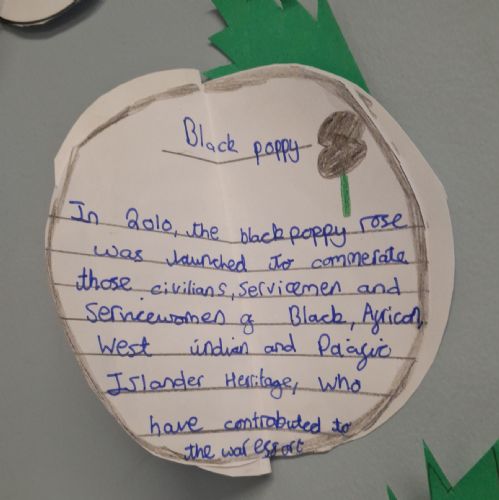 Black poppy
In 2010, the black poppy rose
was launched to commerate
those civilians, servicemen and
Servicewomen of Black, African,
West indian and Pacific
Islander Heritage, who
have controbuted to
the war effort